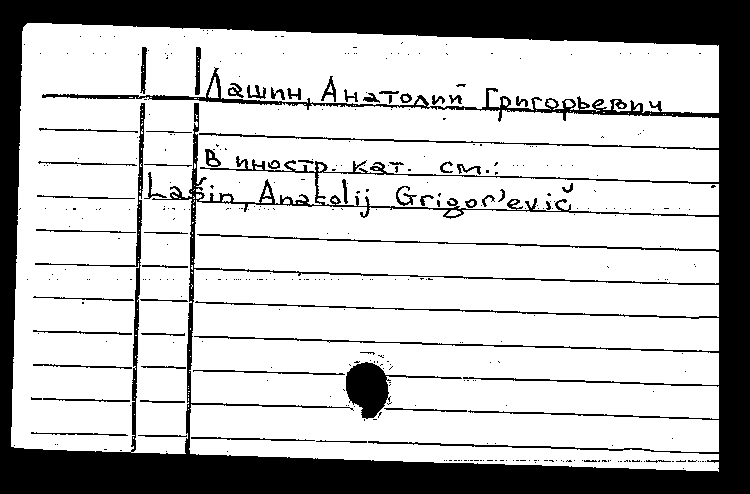 Лашин, Анатолий Григорьевич
В иностр. кат. см.:
Lašin, Anatolij Grigor'evič